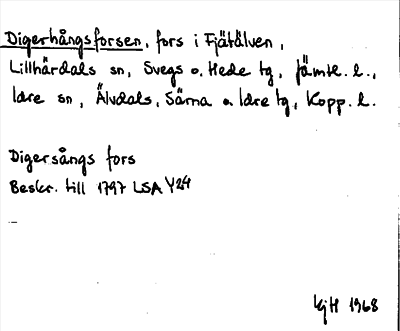 Digerhångsforsen, fors i Fjätälven,
Lillhärdals sn, Svegs o. Hede tg, Jämtl. l.,
Idre sn, Älvdals, Särna o. Idre tg, Kopp. l.
Digersångs fors
Beskr. till 1797 LSA Y24
KjH 1968